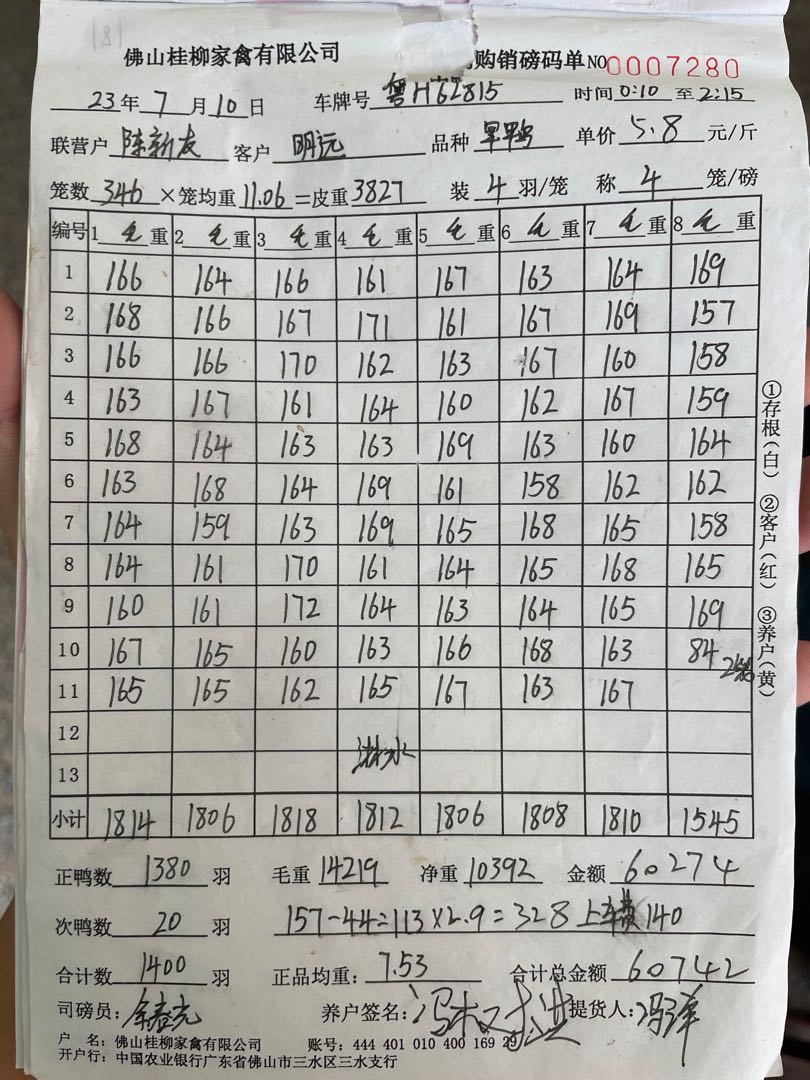 181
佛山桂柳家禽有限公司 购销磅码单NO 0007280
23年7月10日 车牌号 粤H62815 时间0:10至2:15
联营户 陈新友 客户 明远 品种 旱鸭 单价 5.8 元/斤
笼数 346 ×笼均重 11.06 =皮重 3827 装 4 羽/笼 称 4 笼/磅
编号 1 毛 重 2 毛 重 3 毛 重 4 毛 重 5 毛 重 6 毛 重 7 毛 重 8 毛 重
1 166 164 166 161 167 163 164 169
2 168 166 167 171 161 167 169 157
3 166 166 170 162 163 167 160 158
4 163 167 161 164 160 162 167 159
5 168 164 163 163 169 163 160 164
6 163 168 164 169 161 158 162 162
7 164 159 163 169 165 168 165 158
8 164 161 170 161 164 165 168 165
9 160 161 172 164 163 164 165 169
10 167 165 160 163 166 168 163 84 2笼
11 165 165 162 165 167 163 167
12
淋水
13
小计 1814 1806 1818 1812 1806 1808 1810 1545
正鸭数 1380 羽 毛重 14219 净重 10392 金额 60274
次鸭数 20 羽 157-44=113×2.9=328 上车费 140
合计数 1400 羽 正品均重: 7.53 合计总金额 60742
司磅员: 养户签名: 提货人:
户 名: 佛山桂柳家禽有限公司 账号: 444 401 010 400 169 29
开户行: 中国农业银行广东省佛山市三水区三水支行
①存根(白) ②客户(红) ③养户(黄)